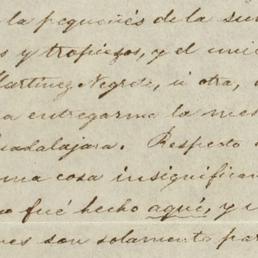 la pequeñés de la su
s y tropiezos, y el uni
Martinez Negrete, ú otra,
a entregarme la mes
uadalajara. Respecto
ma cosa insignifica
o fué hecho aquí, y
nes son solamente par